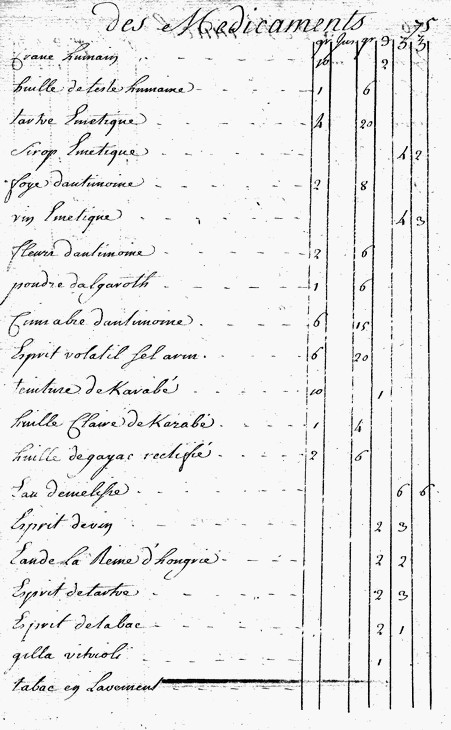 des Medicaments 75
gr Jus gr ℈ ʒ ʒ
Crane humain 10 2
huille de teste humaine 1 6
tartre Emetique 4 20
Sirop Emetique 4 2
foye dantimoine 2 8
vin Emetique 4 3
fleurs dantimoine 2 6
poudre dalgaroth 1 6
Cinnabre dantimoine 6 15
Esprit volatil sel arm. 6 20
teinture de Karabé 10 1
huille Claire de Karabé 1 4
huille de gayac rectifié 2 6
Eau demelisse 6 6
Esprit devin 2 3
Eau de La Reine d'hongrie 2 2
Esprit detartre 2 3
Esprit detabac 2 1
gilla vitrioli 1
tabac en Lavement